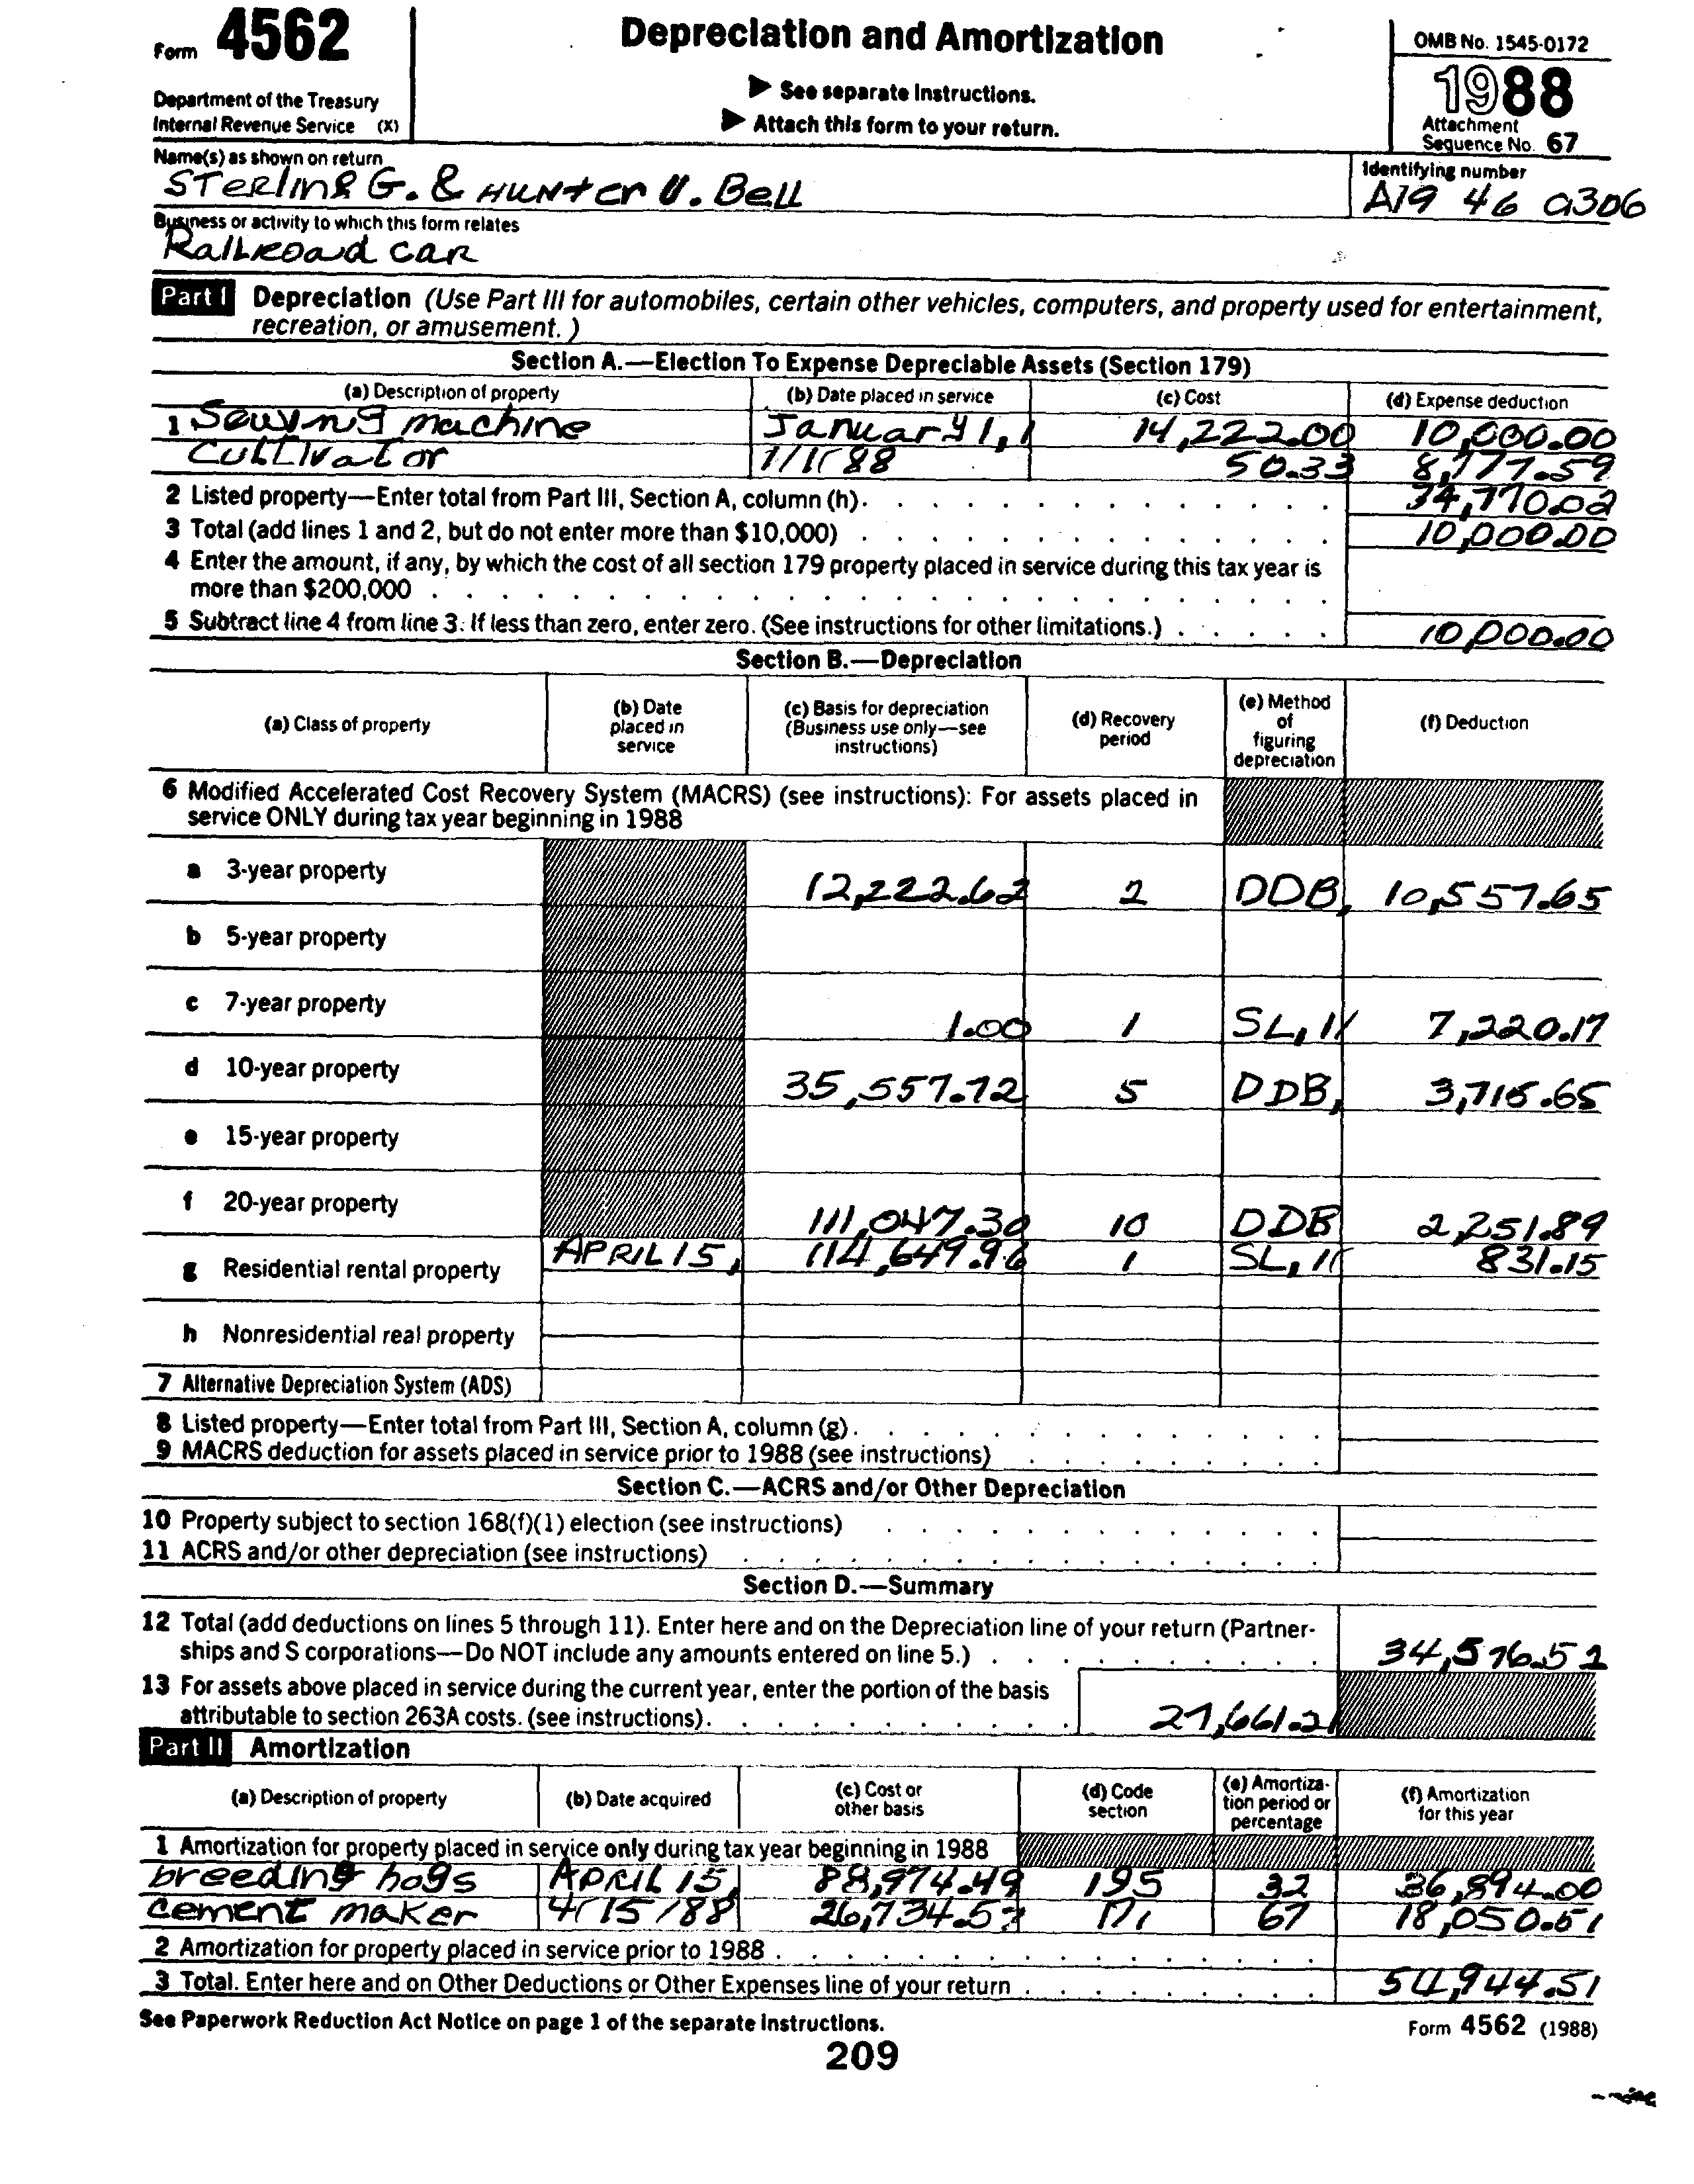 Form 4562
Department of the Treasury
Internal Revenue Service (X)
Depreciation and Amortization
▶ See separate instructions.
▶ Attach this form to your return.
OMB No. 1545-0172
1988
Attachment
Sequence No. 67
Name(s) as shown on return
STerlinG G. & HUNter U. Bell
Identifying number
A19 46 0306
Business or activity to which this form relates
Railroad car
Part I Depreciation (Use Part III for automobiles, certain other vehicles, computers, and property used for entertainment,
recreation, or amusement.)
Section A.—Election To Expense Depreciable Assets (Section 179)
(a) Description of property (b) Date placed in service (c) Cost (d) Expense deduction
1 Sewing machine January 1, 1 14,222.00 10,000.00
Cultivator 1/1/88 50.33 8,777.59
2 Listed property—Enter total from Part III, Section A, column (h). 34,770.02
3 Total (add lines 1 and 2, but do not enter more than $10,000) 10,000.00
4 Enter the amount, if any, by which the cost of all section 179 property placed in service during this tax year is
more than $200,000
5 Subtract line 4 from line 3. If less than zero, enter zero. (See instructions for other limitations.) 10,000.00
Section B.—Depreciation
(a) Class of property
(b) Date
placed in
service
(c) Basis for depreciation
(Business use only—see
instructions)
(d) Recovery
period
(e) Method
of
figuring
depreciation
(f) Deduction
6 Modified Accelerated Cost Recovery System (MACRS) (see instructions): For assets placed in
service ONLY during tax year beginning in 1988
a 3-year property 12,222.62 2 DDB, 10,557.65
b 5-year property
c 7-year property 1.00 1 SL, 1/ 7,220.17
d 10-year property 35,557.72 5 DDB, 3,716.65
e 15-year property
f 20-year property 111,047.30 10 DDB 2,251.89
g Residential rental property APRIL 15, 114,649.96 1 SL, 1/ 831.15
h Nonresidential real property
7 Alternative Depreciation System (ADS)
8 Listed property—Enter total from Part III, Section A, column (g).
9 MACRS deduction for assets placed in service prior to 1988 (see instructions)
Section C.—ACRS and/or Other Depreciation
10 Property subject to section 168(f)(1) election (see instructions)
11 ACRS and/or other depreciation (see instructions)
Section D.—Summary
12 Total (add deductions on lines 5 through 11). Enter here and on the Depreciation line of your return (Partner-
ships and S corporations—Do NOT include any amounts entered on line 5.) 34,576.51
13 For assets above placed in service during the current year, enter the portion of the basis
attributable to section 263A costs. (see instructions). 27,661.21
Part II Amortization
(a) Description of property
(b) Date acquired
(c) Cost or
other basis
(d) Code
section
(e) Amortiza-
tion period or
percentage
(f) Amortization
for this year
1 Amortization for property placed in service only during tax year beginning in 1988
breeding hogs APRIL 15, 88,974.49 195 32 36,894.00
cement maker 4/15/88 26,734.57 171 67 18,050.51
2 Amortization for property placed in service prior to 1988
3 Total. Enter here and on Other Deductions or Other Expenses line of your return 54,944.51
See Paperwork Reduction Act Notice on page 1 of the separate instructions.
Form 4562 (1988)
209